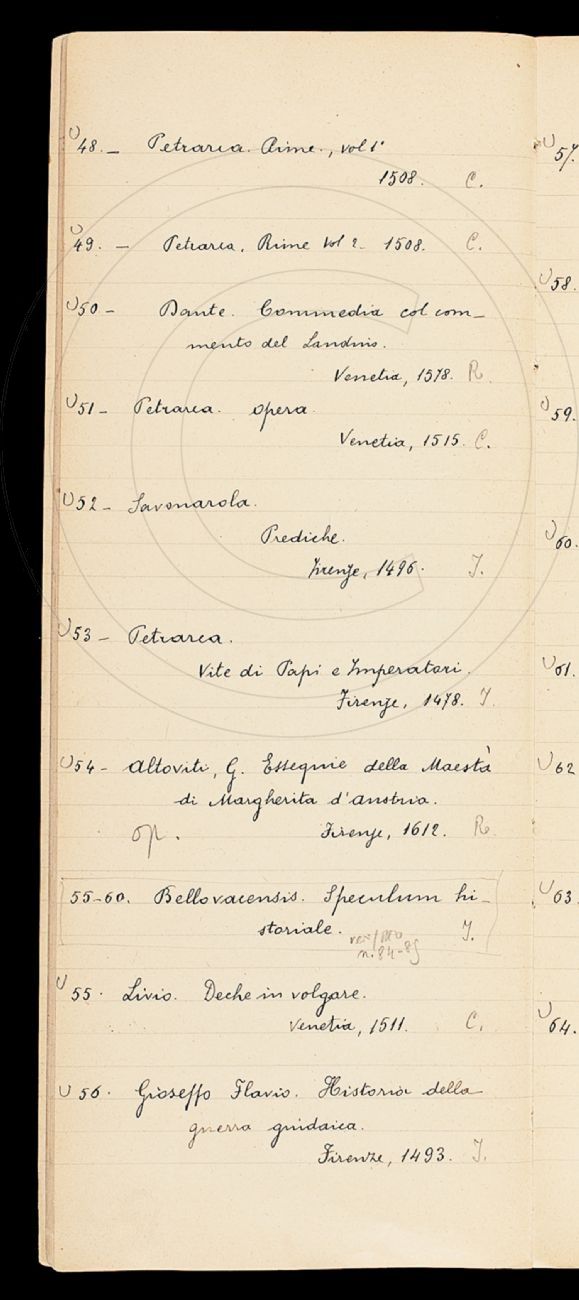 48. – Petrarca. Rime., vol 1°
1508. C.
49. – Petrarca, Rime Vol 2 – 1508. C.
50 – Dante. Commedia col com–
mento del Landino.
Venetia, 1578. R.
51 – Petrarca. opera.
Venetia, 1515. C.
52 – Savonarola.
Prediche.
Firenze, 1496. I.
53 – Petrarca.
Vite di Papi e Imperatori.
Firenze, 1478. I.
54 – Altoviti, G. Essequie della Maestà
di Margherita d'Austria.
op. Firenze, 1612. R.
55-60. Bellovacensis. Speculum hi–
storiale. I.
n. 84-89
55. Livio. Deche in volgare.
Venetia, 1511. C.
56. Gioseffo Flavio. Historia della
guerra giudaica.
Firenze, 1493. I.
57.
58.
59.
60.
61.
62
63
64.